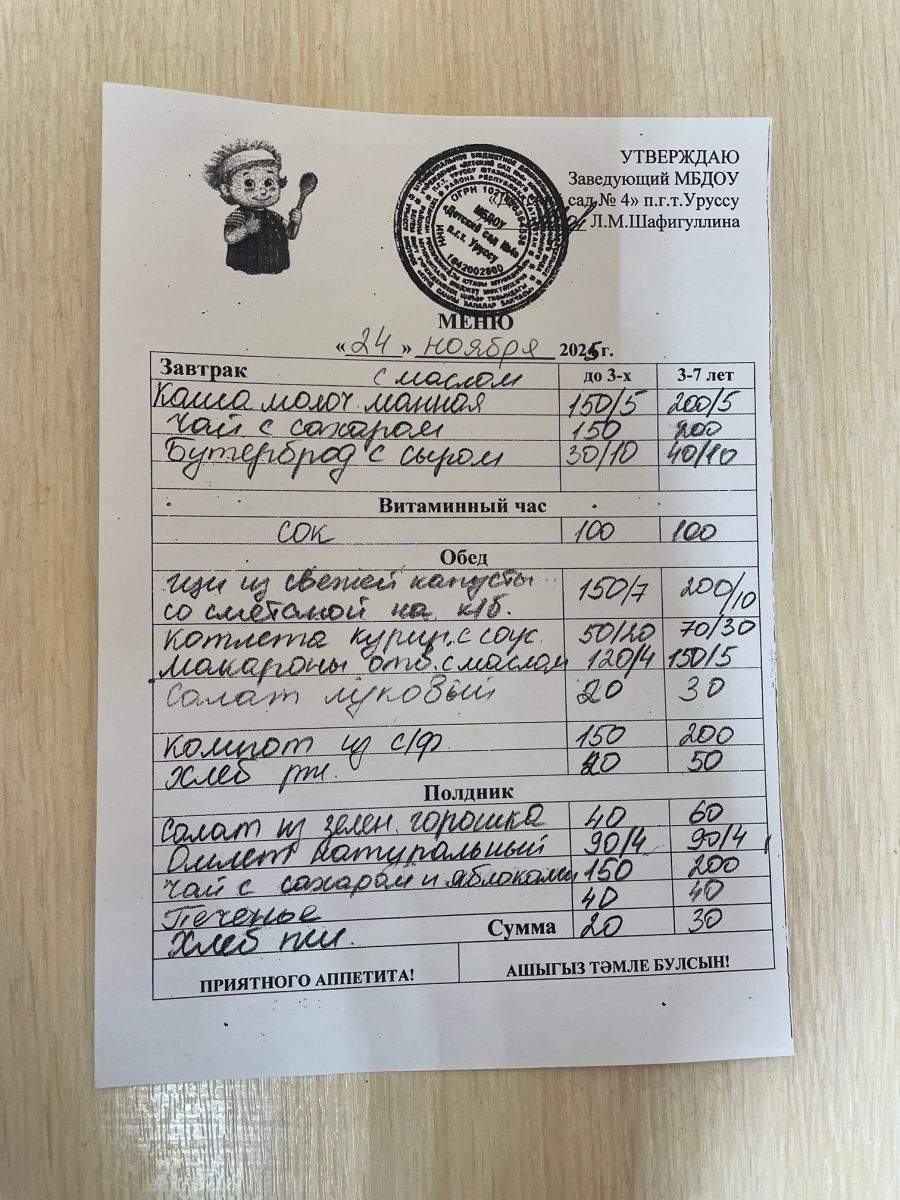 УТВЕРЖДАЮ
Заведующий МБДОУ
сад № 4» п.г.т.Уруссу
Л.М.Шафигуллина
МБДОУ
«Детский сад №4»
п.г.т. Уруссу
1642002660
МЕНЮ
«24» ноября 2025г.
Завтрак с маслом до 3-х 3-7 лет
Каша молоч. манная 150/5 200/5
Чай с сахаром 150 200
Бутерброд с сыром 30/10 40/10
Витаминный час
сок 100 100
Обед
щи из свежей капусты
со сметаной на к/б. 150/7 200/10
котлета курин. с соус. 50/20 70/30
макароны отв. с маслом 120/4 150/5
Салат луковый 20 30
Компот из с/ф. 150 200
Хлеб рж. 20 50
Полдник
Салат из зелен. горошка 40 60
Омлет натуральный 90/4 90/4
Чай с сахаром и яблоками 150 200
Печенье 40 40
Хлеб пш. Сумма 20 30
ПРИЯТНОГО АППЕТИТА! АШЫГЫЗ ТӘМЛЕ БУЛСЫН!